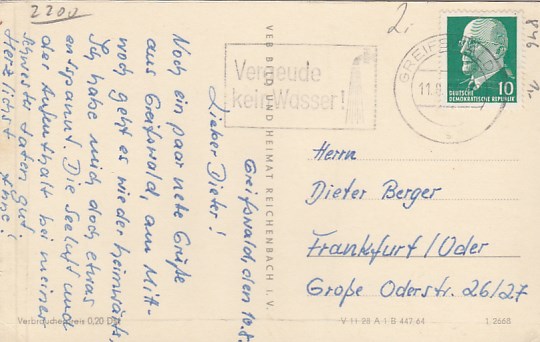 2200
2,-
846
Vergeude
kein Wasser!
GREIFS
11.8
DEUTSCHE
DEMOKRATISCHE REPUBLIK
10
Greifswald, den 10.8.
Lieber Dieter!
Noch ein paar nete Grüße
aus Greifswald, am Mit-
woch geht es wieder heimwärts,
Ich habe mich doch etwas
entspannt. Die Seeluft und
der Aufenthalt bei meiner
Schwester taten gut.
Herzlichst
VEB BILD UND HEIMAT REICHENBACH I. V.
Herrn
Dieter Berger
Frankfurt/Oder
Große Oderstr. 26/27
Verbraucherpreis 0,20 DM
V 11 28 A 1 B 447 64
1, 2668